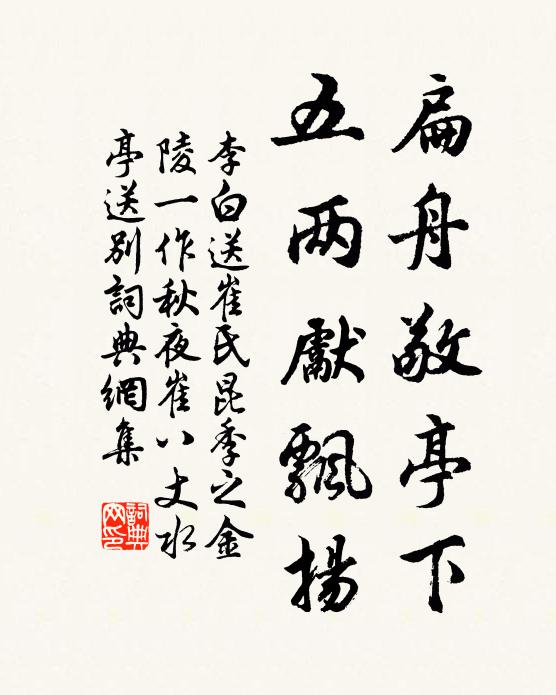 扁舟敬亭下
五两獻飄揚
李白送崔氏昆季之金
陵一作秋夜崔八丈水
亭送别詞典網集
詞典
网印